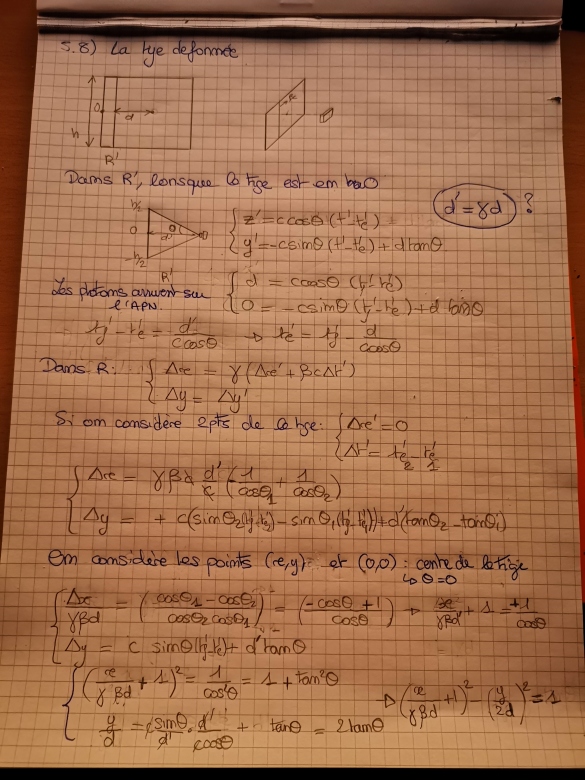 5.8) La tige deformée
h
O
d
R'
Dans R', lorsque la tige est en
d' = γd ?
h/2
O
-h/2
d'
θ
R'
{ x' = c cosθ (t'-t'e)
{ y' = -c sinθ (t'-t'e) + d tanθ
Les photons arrivent sur l'APN.
{ d = c cosθ (t'f - t'e)
{ 0 = -c sinθ (t'f - t'e) + d tanθ
t'f - t'e = d'/(c cosθ) → t'e = t'f - d/(c cosθ)
Dans R: { Δx = γ(Δx' + βcΔt')
{ Δy = Δy'
Si on considère 2pts de la tige: { Δx' = 0
{ Δt' = t'e2 - t'e1
{ Δx = γβc d'/c (-1/cosθ1 + 1/cosθ2)
{ Δy = + c(sinθ2(t'f-t'e2) - sinθ1(t'f-t'e1)) + d'(tanθ2 - tanθ1)
On considère les points (x,y) et (0,0) : centre de la tige
↳ θ=0
{ Δx/(γβd) = ((cosθ1 - cosθ2)/(cosθ2 cosθ1)) = ((-cosθ + 1)/cosθ) → x/(γβd') + 1 = +1/cosθ
{ Δy = c sinθ(t'f-t'e) + d' tanθ
{ (x/(γβd) + 1)² = 1/cos²θ = 1 + tan²θ
→ (x/(γβd) + 1)² - (y/2d)² = 1
{ y/d = c sinθ/d' . d'/(c cosθ) + tanθ = 2 tanθ